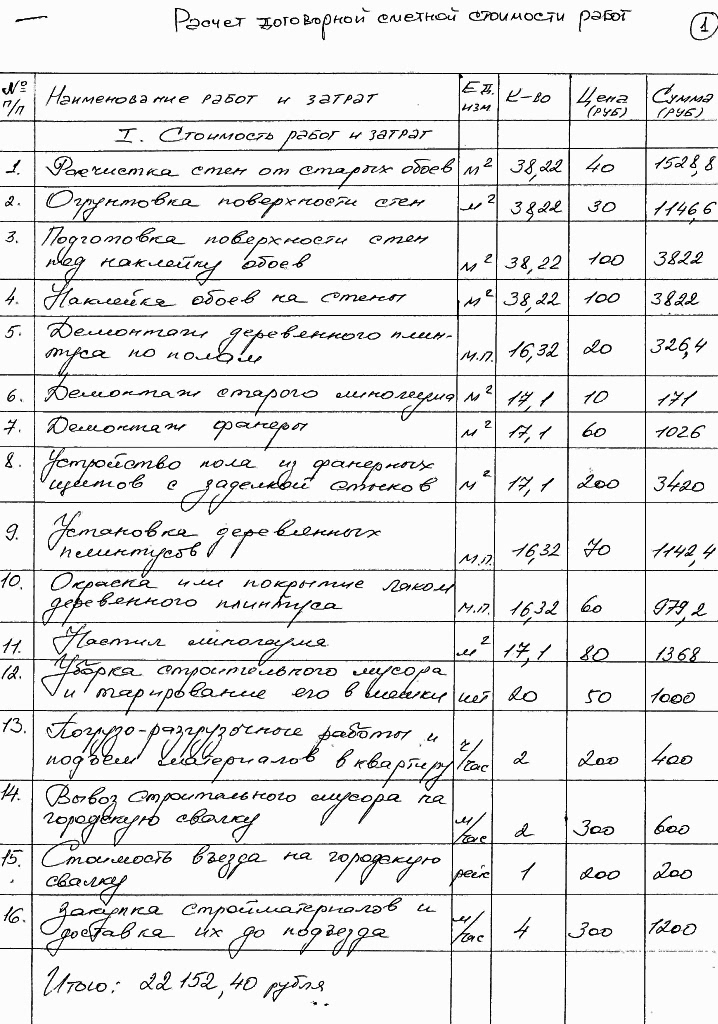 Расчет договорной сметной стоимости работ 1
№ п/п Наименование работ и затрат Ед. изм К-во Цена (РУБ) Сумма (РУБ)
I. Стоимость работ и затрат
1. Расчистка стен от старых обоев м² 38,22 40 1528,8
2. Огрунтовка поверхности стен м² 38,22 30 1146,6
3. Подготовка поверхности стен
под наклейку обоев м² 38,22 100 3822
4. Наклейка обоев на стены м² 38,22 100 3822
5. Демонтаж деревенного плин-
туса по полам м.п. 16,32 20 326,4
6. Демонтаж старого линолеума м² 17,1 10 171
7. Демонтаж фанеры м² 17,1 60 1026
8. Устройство пола из фанерных
щитов с заделкой стыков м² 17,1 200 3420
9. Установка деревянных
плинтусов м.п. 16,32 70 1142,4
10. Окраска или покрытие лаком
деревенного плинтуса м.п. 16,32 60 979,2
11. Настил линолеума м² 17,1 80 1368
12. Уборка строительного мусора
и тарирование его в мешки шт 20 50 1000
13. Погрузо-разгрузочные работы и
подъем материалов в квартиру ч/час 2 200 400
14. Вывоз строительного мусора на
городскую свалку м/час 2 300 600
15. Стоимость въезда на городскую
свалку рейс 1 200 200
16. Закупка стройматериалов и
доставка их до подъезда м/час 4 300 1200
Итого: 22 152,40 рубля